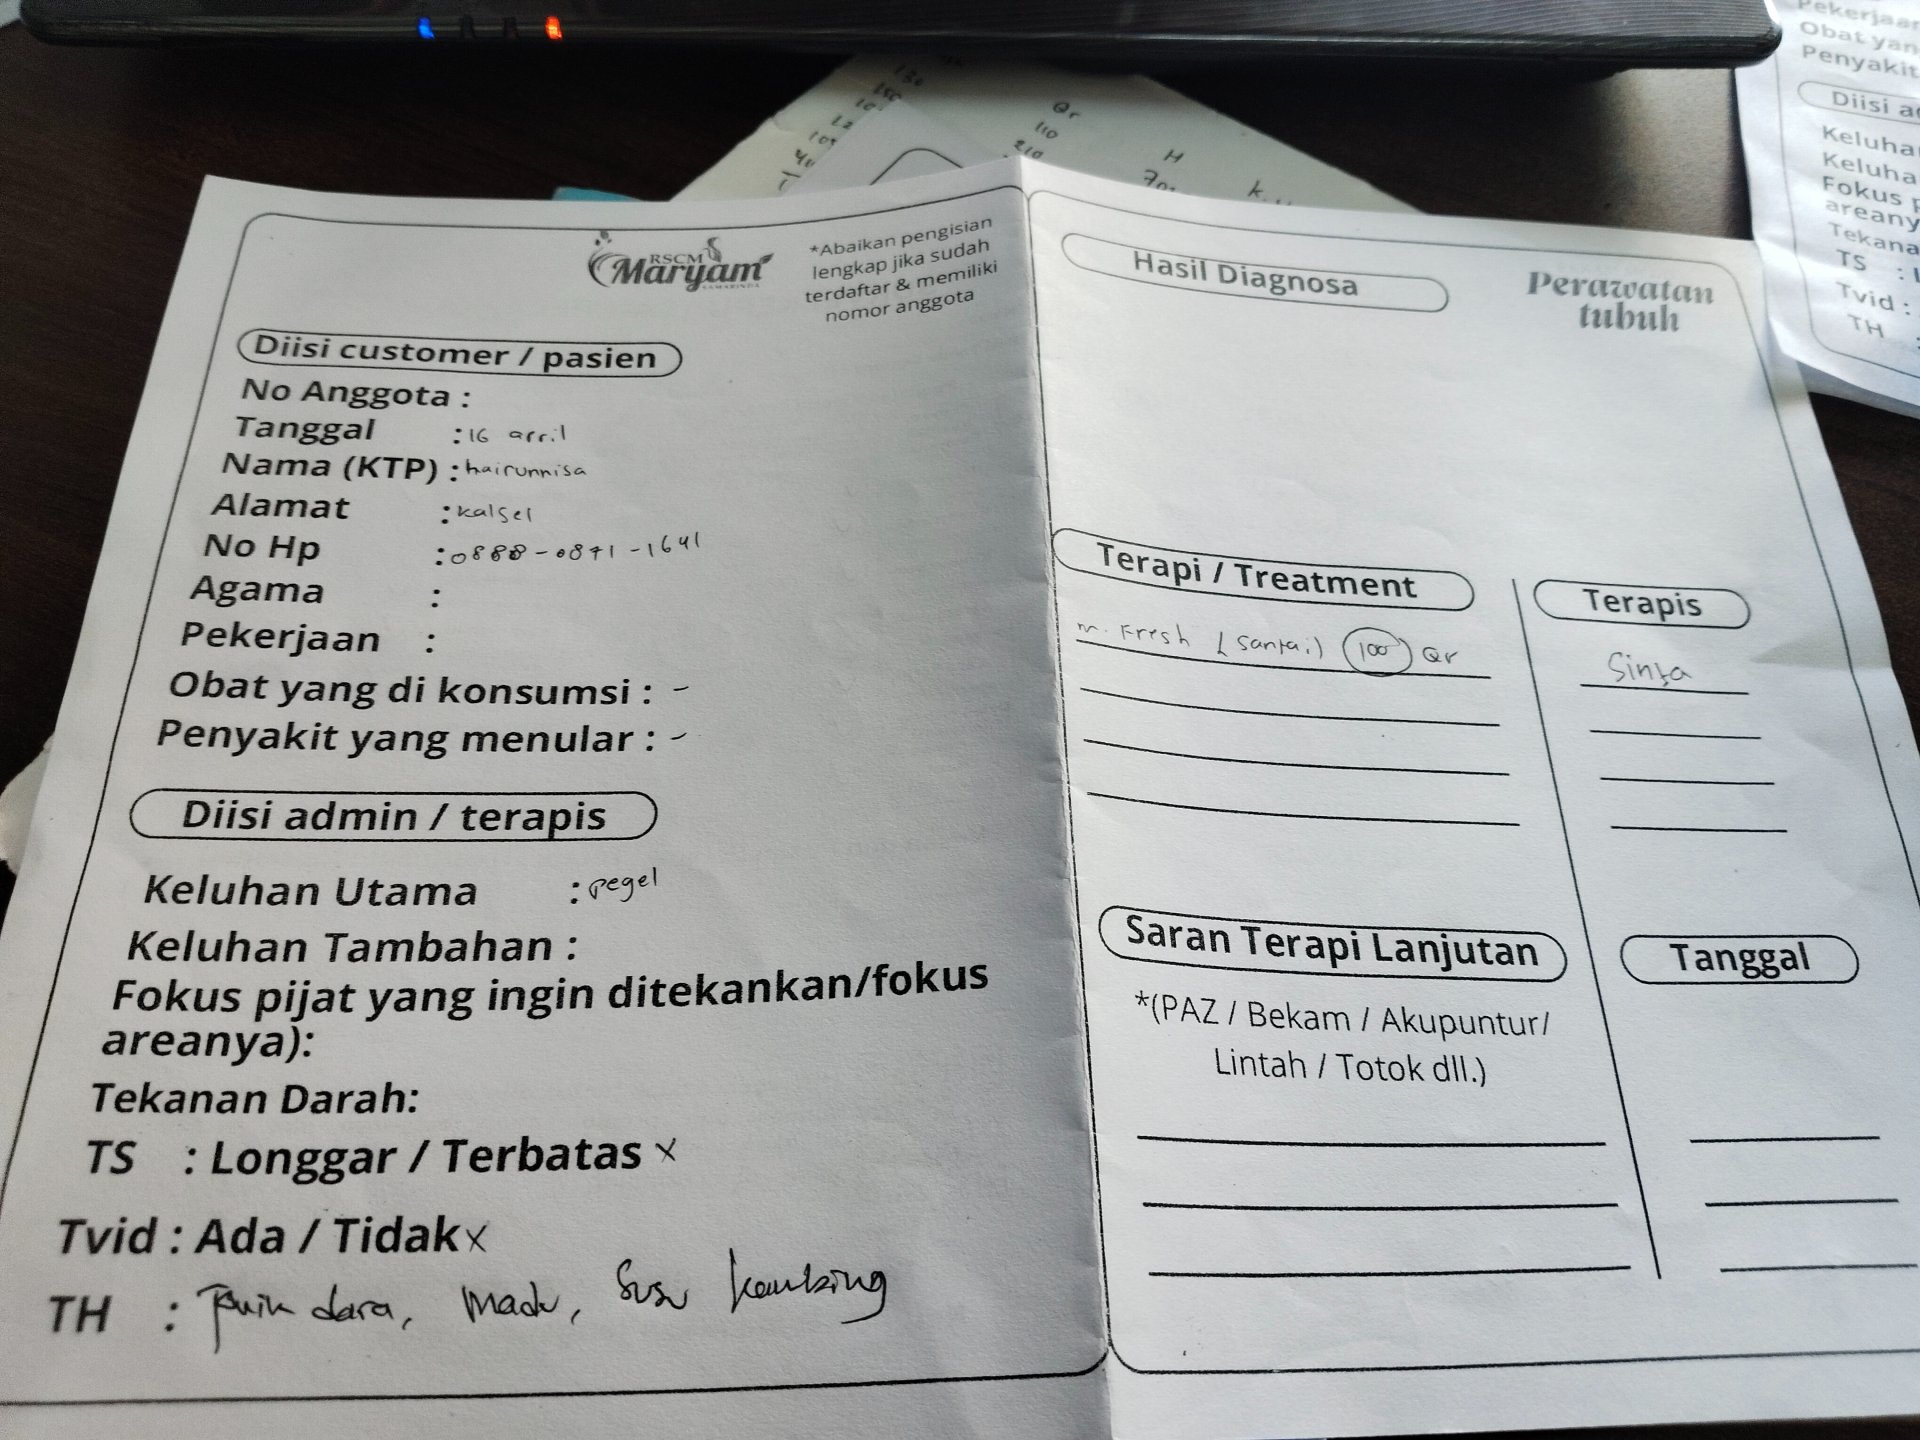 RSCM
Maryam
SAMARINDA
*Abaikan pengisian
lengkap jika sudah
terdaftar & memiliki
nomor anggota
Diisi customer / pasien
No Anggota :
Tanggal : 16 april
Nama (KTP) : hairunnisa
Alamat : kalsel
No Hp : 0888-0871-1641
Agama :
Pekerjaan :
Obat yang di konsumsi : -
Penyakit yang menular : -
Diisi admin / terapis
Keluhan Utama : pegel
Keluhan Tambahan :
Fokus pijat yang ingin ditekankan/fokus
areanya):
Tekanan Darah:
TS : Longgar / Terbatas x
Tvid : Ada / Tidak x
TH : dara, madu, susu kambing
Hasil Diagnosa
Perawatan
tubuh
Terapi / Treatment
m. Fresh (santai) 100 Qr
Terapis
Sinta
Saran Terapi Lanjutan
*(PAZ / Bekam / Akupuntur/
Lintah / Totok dll.)
Tanggal
Qr
110
210
H
k.
Pekerjaan
Obat yan
Penyakit
Diisi a
Keluha
Keluha
Fokus p
areany
Tekana
TS :
Tvid :
TH :